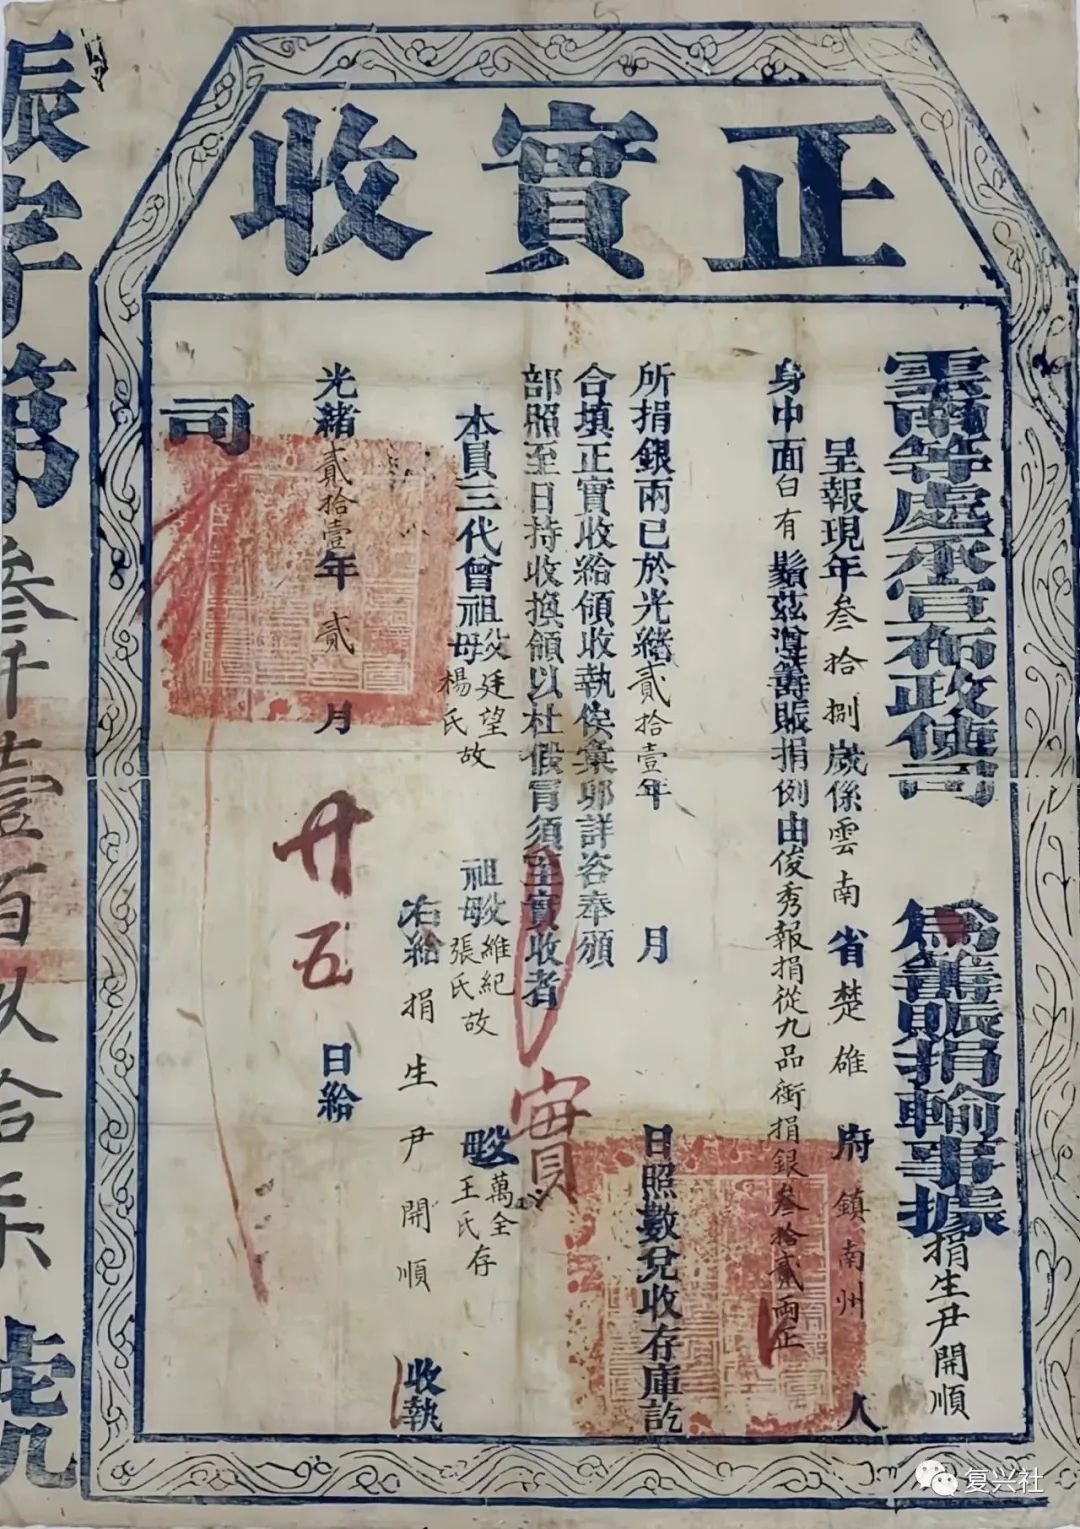 正實收
雲南等處承宣布政使司 為籌賑捐輸事據捐生尹開順
呈報現年叁拾捌歲係雲南省楚雄府鎮南州人
身中面白有鬚茲遵籌賑捐例由俊秀報捐從九品銜捐銀叁拾貳兩正
所捐銀兩已於光緒貳拾壹年 月 日照數兌收存庫訖
合填正實收給領收執俟彙卯詳咨奉頒
部照至日持收換領以杜假冒須至實收者
本員三代曾祖父廷望故 母楊氏故 祖父維紀故 母張氏故 父萬全存 母王氏存
右給捐生尹開順 收執
光緒貳拾壹年貳月廿五日給
司
實
賑字第叁仟壹百 拾 號
复兴社